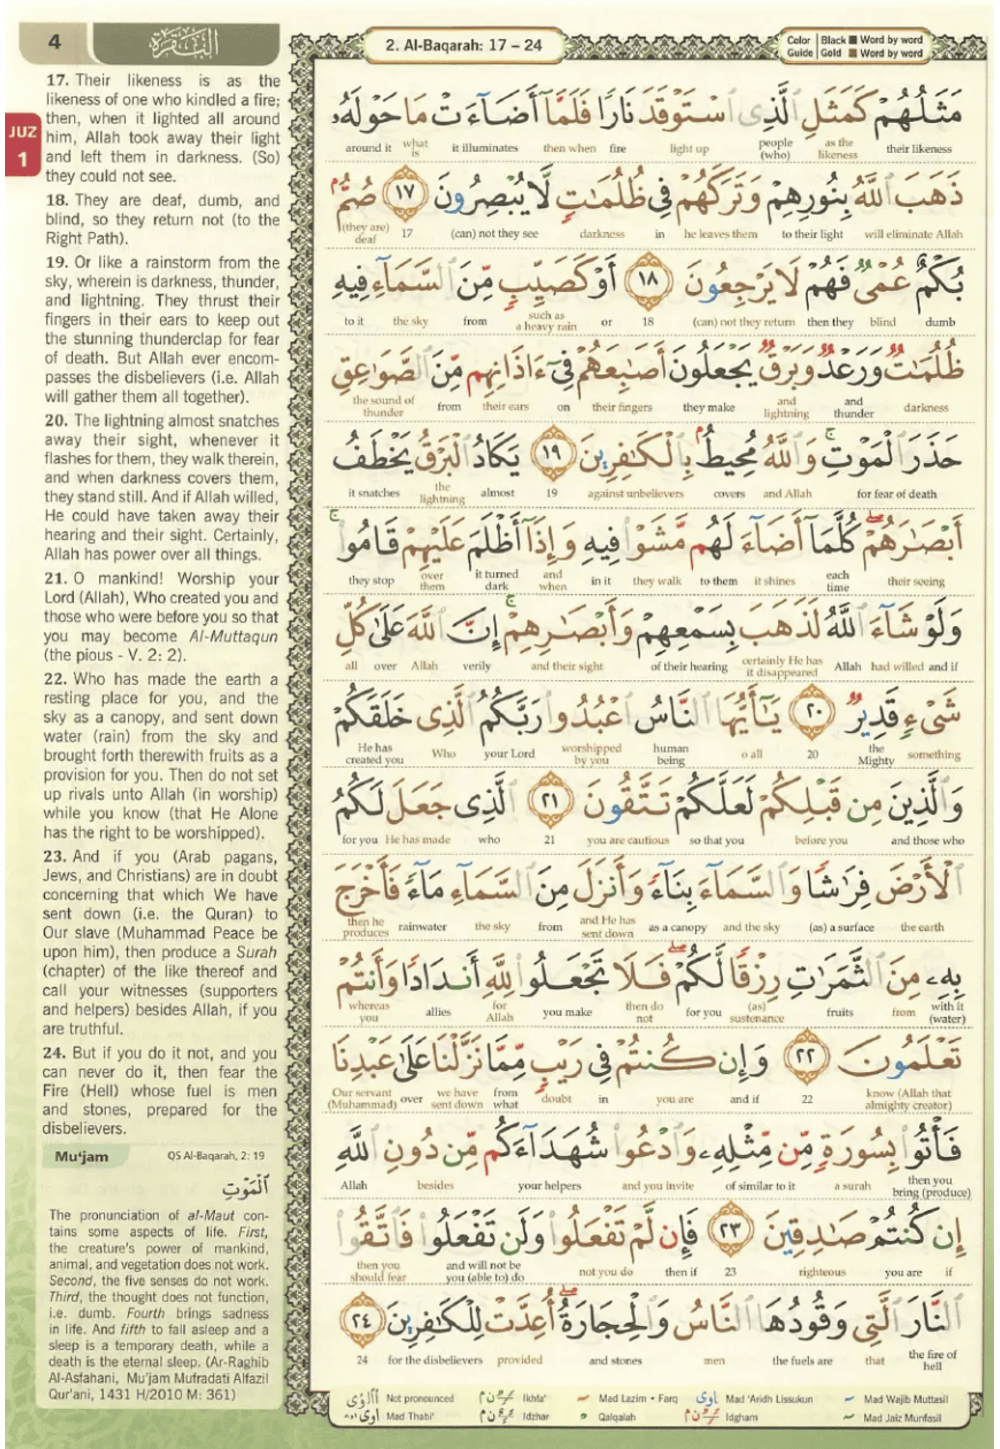 4
البقرة
2. Al-Baqarah: 17 – 24
Color Guide
Black ■ Word by word
Gold ■ Word by word
JUZ 1
17. Their likeness is as the
likeness of one who kindled a fire;
then, when it lighted all around
him, Allah took away their light
and left them in darkness. (So)
they could not see.
18. They are deaf, dumb, and
blind, so they return not (to the
Right Path).
19. Or like a rainstorm from the
sky, wherein is darkness, thunder,
and lightning. They thrust their
fingers in their ears to keep out
the stunning thunderclap for fear
of death. But Allah ever encom-
passes the disbelievers (i.e. Allah
will gather them all together).
20. The lightning almost snatches
away their sight, whenever it
flashes for them, they walk therein,
and when darkness covers them,
they stand still. And if Allah willed,
He could have taken away their
hearing and their sight. Certainly,
Allah has power over all things.
21. O mankind! Worship your
Lord (Allah), Who created you and
those who were before you so that
you may become Al-Muttaqun
(the pious - V. 2: 2).
22. Who has made the earth a
resting place for you, and the
sky as a canopy, and sent down
water (rain) from the sky and
brought forth therewith fruits as a
provision for you. Then do not set
up rivals unto Allah (in worship)
while you know (that He Alone
has the right to be worshipped).
23. And if you (Arab pagans,
Jews, and Christians) are in doubt
concerning that which We have
sent down (i.e. the Quran) to
Our slave (Muhammad Peace be
upon him), then produce a Surah
(chapter) of the like thereof and
call your witnesses (supporters
and helpers) besides Allah, if you
are truthful.
24. But if you do it not, and you
can never do it, then fear the
Fire (Hell) whose fuel is men
and stones, prepared for the
disbelievers.
Mu'jam QS Al-Baqarah, 2: 19
الْمَوْتِ
The pronunciation of al-Maut con-
tains some aspects of life. First,
the creature's power of mankind,
animal, and vegetation does not work.
Second, the five senses do not work.
Third, the thought does not function,
i.e. dumb. Fourth brings sadness
in life. And fifth to fall asleep and a
sleep is a temporary death, while a
death is the eternal sleep. (Ar-Raghib
Al-Asfahani, Mu'jam Mufradati Alfazil
Qur'ani, 1431 H/2010 M: 361)
مَثَلُهُمْ كَمَثَلِ الَّذِى اسْتَوْقَدَ نَارًا فَلَمَّآ أَضَآءَتْ مَا حَوْلَهُۥ
around it what is it illuminates then when fire light up people (who) as the likeness their likeness
ذَهَبَ اللَّهُ بِنُورِهِمْ وَتَرَكَهُمْ فِى ظُلُمَٰتٍ لَّا يُبْصِرُونَ ١٧ صُمٌّۢ
(they are) deaf 17 (can) not they see darkness in he leaves them to their light will eliminate Allah
بُكْمٌ عُمْىٌ فَهُمْ لَا يَرْجِعُونَ ١٨ أَوْ كَصَيِّبٍ مِّنَ السَّمَآءِ فِيهِ
to it the sky from such as a heavy rain or 18 (can) not they return then they blind dumb
ظُلُمَٰتٌ وَرَعْدٌ وَبَرْقٌ يَجْعَلُونَ أَصَٰبِعَهُمْ فِىٓ ءَاذَانِهِم مِّنَ الصَّوَٰعِقِ
the sound of thunder from their ears on their fingers they make and lightning and thunder darkness
حَذَرَ الْمَوْتِ ۚ وَاللَّهُ مُحِيطٌۢ بِالْكَٰفِرِينَ ١٩ يَكَادُ الْبَرْقُ يَخْطَفُ
it snatches the lightning almost 19 against unbelievers covers and Allah for fear of death
أَبْصَٰرَهُمْ ۖ كُلَّمَآ أَضَآءَ لَهُم مَّشَوْا فِيهِ وَإِذَآ أَظْلَمَ عَلَيْهِمْ قَامُوا ۚ
they stop over them it turned dark and when in it they walk to them it shines each time their seeing
وَلَوْ شَآءَ اللَّهُ لَذَهَبَ بِسَمْعِهِمْ وَأَبْصَٰرِهِمْ ۚ إِنَّ اللَّهَ عَلَىٰ كُلِّ
all over Allah verily and their sight of their hearing certainly He has it disappeared Allah had willed and if
شَىْءٍ قَدِيرٌ ٢٠ يَٰٓأَيُّهَا النَّاسُ اعْبُدُوا رَبَّكُمُ الَّذِى خَلَقَكُمْ
He has created you Who your Lord worshipped by you human being o all 20 the Mighty something
وَالَّذِينَ مِن قَبْلِكُمْ لَعَلَّكُمْ تَتَّقُونَ ٢١ الَّذِى جَعَلَ لَكُمُ
for you He has made who 21 you are cautious so that you before you and those who
الْأَرْضَ فِرَٰشًا وَالسَّمَآءَ بِنَآءً وَأَنزَلَ مِنَ السَّمَآءِ مَآءً فَأَخْرَجَ
then he produces rainwater the sky from and He has sent down as a canopy and the sky (as) a surface the earth
بِهِۦ مِنَ الثَّمَرَٰتِ رِزْقًا لَّكُمْ ۖ فَلَا تَجْعَلُوا لِلَّهِ أَندَادًا وَأَنتُمْ
whereas you allies for Allah you make then do not for you (as) sustenance fruits from with it (water)
تَعْلَمُونَ ٢٢ وَإِن كُنتُمْ فِى رَيْبٍ مِّمَّا نَزَّلْنَا عَلَىٰ عَبْدِنَا
Our servant (Muhammad) over we have sent down from what doubt in you are and if 22 know (Allah that almighty creator)
فَأْتُوا بِسُورَةٍ مِّن مِّثْلِهِۦ وَادْعُوا شُهَدَآءَكُم مِّن دُونِ اللَّهِ
Allah besides your helpers and you invite of similar to it a surah then you bring (produce)
إِن كُنتُمْ صَٰدِقِينَ ٢٣ فَإِن لَّمْ تَفْعَلُوا وَلَن تَفْعَلُوا فَاتَّقُوا
then you should fear and will not be you (able to) do not you do then if 23 righteous you are if
النَّارَ الَّتِى وَقُودُهَا النَّاسُ وَالْحِجَارَةُ ۖ أُعِدَّتْ لِلْكَٰفِرِينَ ٢٤
24 for the disbelievers provided and stones men the fuels are that the fire of hell
Not pronounced Ikhfa' Mad Lazim • Farq Mad 'Aridh Lissukun Mad Wajib Muttasil
Mad Thabi' Idzhar Qalqalah Idgham Mad Jaiz Munfasil